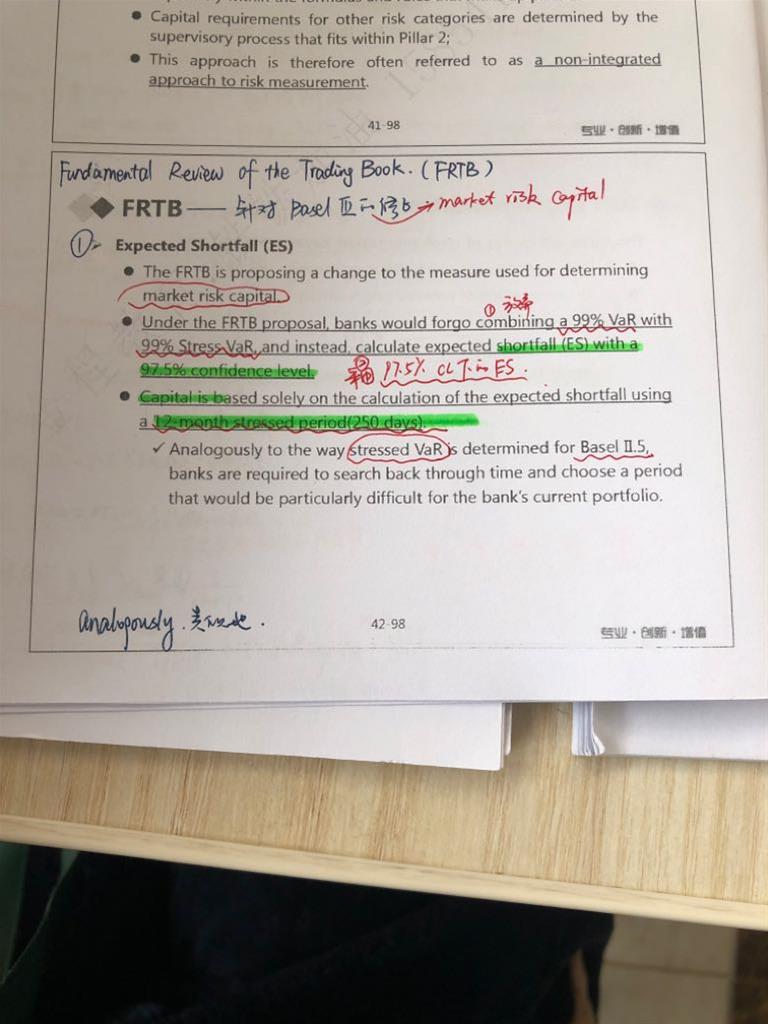 ● Capital requirements for other risk categories are determined by the
supervisory process that fits within Pillar 2;
● This approach is therefore often referred to as a non-integrated
approach to risk measurement.
41-98
专业·创新·增值
Fundamental Review of the Trading Book. (FRTB)
FRTB —— 针对 Basel III的修改 → market risk capital
① ➢ Expected Shortfall (ES)
● The FRTB is proposing a change to the measure used for determining
market risk capital.
① 放弃
● Under the FRTB proposal, banks would forgo combining a 99% VaR with
99% Stress VaR, and instead, calculate expected shortfall (ES) with a
97.5% confidence level. ② 采用 97.5% CL下的 ES.
● Capital is based solely on the calculation of the expected shortfall using
a 12-month stressed period(250 days).
✓ Analogously to the way stressed VaR is determined for Basel II.5,
banks are required to search back through time and choose a period
that would be particularly difficult for the bank's current portfolio.
analogously. 类似地.
42-98
专业·创新·增值